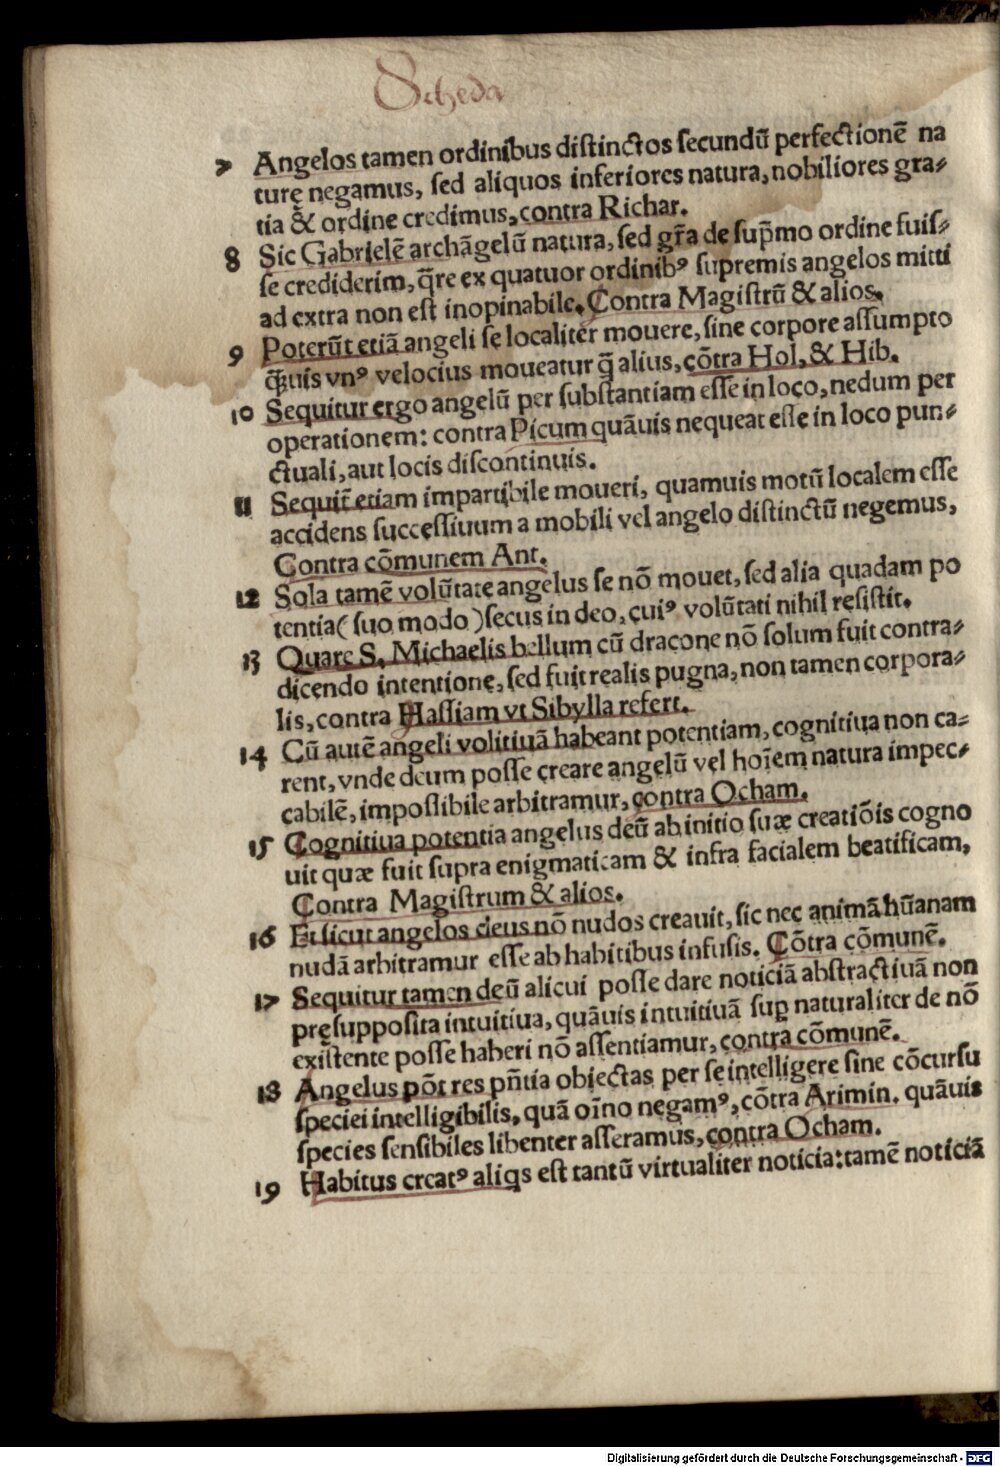 Scheda
7 Angelos tamen ordinibus distinctos secundū perfectionē na
turę negamus, sed aliquos inferiores natura, nobiliores gra⸗
tia & ordine credimus, contra Richar.
8 Sic Gabrielē archāgelū natura, sed gr̄a de sup̄mo ordine fuis⸗
se crediderim, q̄re ex quatuor ordinibꝰ supremis angelos mitti
ad extra non est inopinabile. Contra Magistrū & alios.
9 Poterūt etiā angeli se localiter mouere, sine corpore assumpto
q̄uis vnꝰ velocius moueatur q̄ alius, cōtra Hol, & Hib.
10 Sequitur ergo angelū per substantiam esse in loco, nedum per
operationem: contra Picum quāuis nequeat esse in loco pun⸗
ctuali, aut locis discontinuis.
11 Sequit̄ etiam impartibile moueri, quamuis motū localem esse
accidens successiuum a mobili vel angelo distinctū negemus,
Contra cōmunem Ant.
12 Sola tamē volūtate angelus se nō mouet, sed alia quadam po
tentia( suo modo ) secus in deo, cuiꝰ volūtati nihil resistit.
13 Quare S. Michaelis bellum cū dracone nō solum fuit contra⸗
dicendo intentionę, sed fuit realis pugna, non tamen corpora⸗
lis, contra Hassiam vt Sibylla refert.
14 Cū autē angeli volitiuā habeant potentiam, cognitiua non ca⸗
rent, vnde deum posse creare angelū vel hoīem natura impec⸗
cabilē, impossibile arbitramur, contra Ocham.
15 Cognitiua potentia angelus deū ab initio suæ creatiōis cogno
uit quæ fuit supra enigmaticam & infra facialem beatificam,
Contra Magistrum & alios.
16 Et sicut angelos deus nō nudos creauit, sic nec animā hūanam
nudā arbitramur esse ab habitibus infusis. Cōtra cōmunē.
17 Sequitur tamen deū alicui posse dare noticiā abstractiuā non
pręsupposita intuitiua, quāuis intuitiuā suꝑ naturaliter de nō
existente posse haberi nō assentiamur, contra cōmunē.
18 Angelus pōt res pn̄tia obiectas per se intelligere sine cōcursu
speciei intelligibilis, quā oīno negamꝰ, cōtra Arimin. quāuis
species sensibiles libenter asseramus, contra Ocham.
19 Habitus creatꝰ aliqs est tantū virtualiter noticia: tamē noticiā
Digitalisierung gefördert durch die Deutsche Forschungsgemeinschaft - DFG